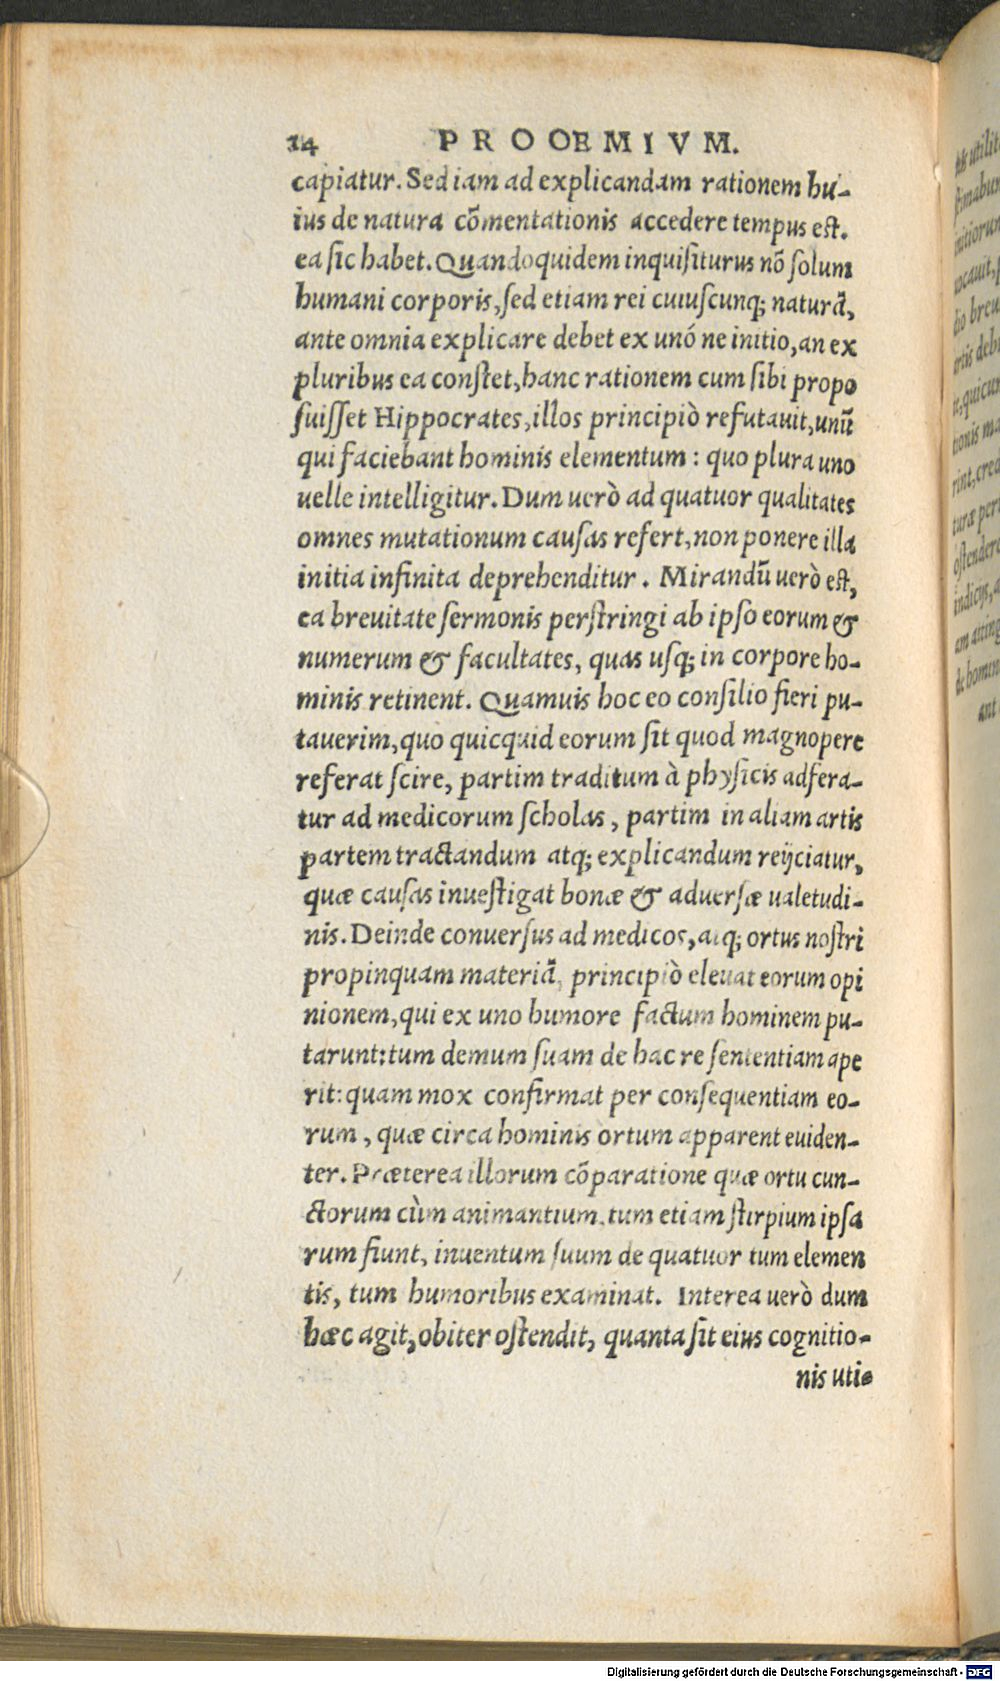 14 PROOEMIVM.
capiatur. Sed iam ad explicandam rationem hu-
ius de natura cõmentationis accedere tempus est.
ea sic habet. Quandoquidem inquisiturus nõ solum
humani corporis, sed etiam rei cuiuscunq; naturã,
ante omnia explicare debet ex unó ne initio, an ex
pluribus ea constet, hanc rationem cum sibi propo
suisset Hippocrates, illos principiò refutauit, unũ
qui faciebant hominis elementum: quo plura uno
uelle intelligitur. Dum uerò ad quatuor qualitates
omnes mutationum causas refert, non ponere illa
initia infinita deprehenditur. Mirandũ uerò est,
ea breuitate sermonis perstringi ab ipso eorum &
numerum & facultates, quas usq; in corpore ho-
minis retinent. Quamuis hoc eo consilio fieri pu-
tauerim, quo quicquid eorum sit quod magnopere
referat scire, partim traditum à physicis adfera-
tur ad medicorum scholas, partim in aliam artis
partem tractandum atq; explicandum reijciatur,
quæ causas inuestigat bonæ & aduersæ ualetudi-
nis. Deinde conuersus ad medicos, atq; ortus nostri
propinquam materiã, principiò eleuat eorum opi
nionem, qui ex uno humore factum hominem pu-
tarunt: tum demum suam de hac re sententiam ape
rit: quam mox confirmat per consequentiam eo-
rum, quæ circa hominis ortum apparent euiden-
ter. Præterea illorum cõparatione quæ ortu cun-
ctorum cùm animantium, tum etiam stirpium ipsa
rum fiunt, inuentum suum de quatuor tum elemen
tis, tum humoribus examinat. Interea uerò dum
hæc agit, obiter ostendit, quanta sit eius cognitio-
nis uti-
Digitalisierung gefördert durch die Deutsche Forschungsgemeinschaft - DFG